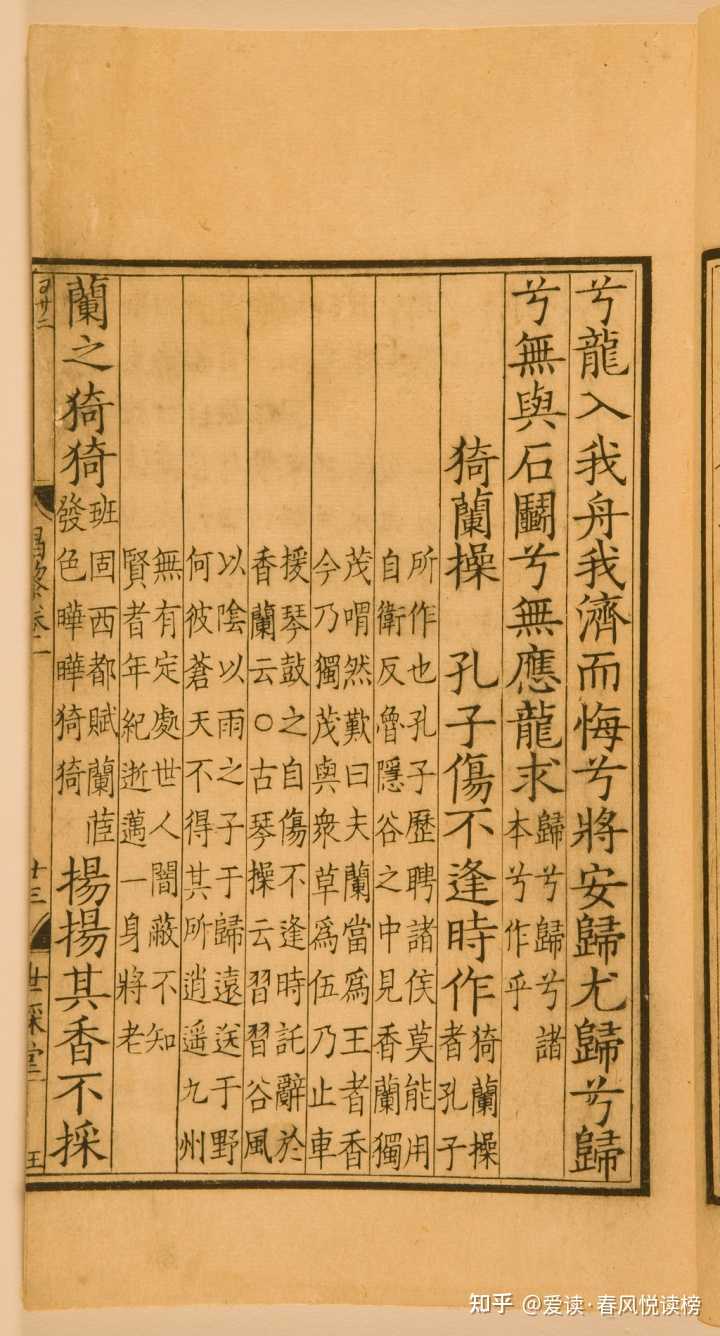 兮龍入我舟我濟而悔兮將安歸尤歸兮歸
兮無與石鬭兮無應龍求
歸兮歸兮諸
本兮作乎
猗蘭操 孔子傷不逢時作
猗蘭操
者孔子
所作也孔子歷聘諸侯莫能用
自衛反魯隱谷之中見香蘭獨
茂喟然歎曰夫蘭當爲王者香
今乃獨茂與衆草爲伍乃止車
援琴鼓之自傷不逢時託辭於
香蘭云○古琴操云習習谷風
以陰以雨之子于歸遠送于野
何彼蒼天不得其所逍遥九州
無有定處世人闇蔽不知
賢者年紀逝邁一身將老
蘭之猗猗
班固西都賦蘭茝
發色曄曄猗猗
揚揚其香不採
廿三
世綵堂
知乎 @爱读·春风悦读榜